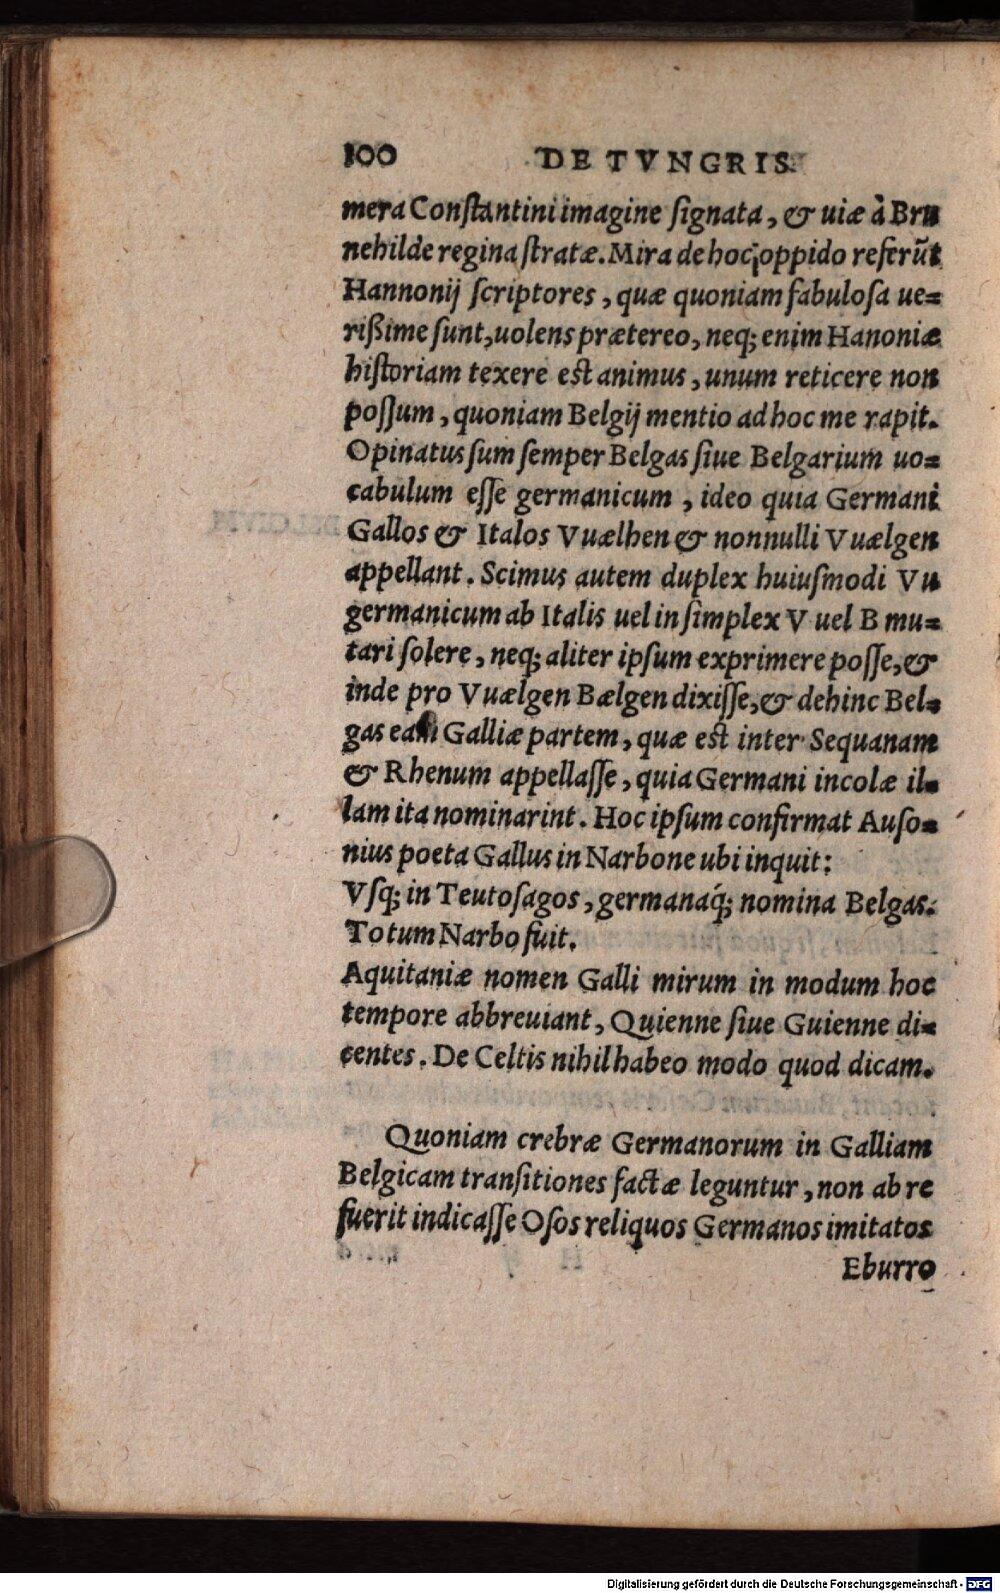 100 DE TVNGRIS.
mera Conſtantini imagine ſignata, & uiæ à Bru
nehilde regina ſtratæ. Mira de hoc oppido referũt
Hannonij ſcriptores, quæ quoniam fabuloſa ue=
rißime ſunt, uolens prætereo, neq; enim Hanoniæ
hiſtoriam texere eſt animus, unum reticere non
poſſum, quoniam Belgij mentio ad hoc me rapit.
Opinatus ſum ſemper Belgas ſiue Belgarium uo=
cabulum eſſe germanicum, ideo quia Germani
Gallos & Italos Vuælhen & nonnulli Vuælgen
appellant. Scimus autem duplex huiuſmodi Vu
germanicum ab Italis uel in ſimplex V uel B mu=
tari ſolere, neq; aliter ipſum exprimere poſſe, &
inde pro Vuælgen Bælgen dixiſſe, & dehinc Bel=
gas eam Galliæ partem, quæ eſt inter Sequanam
& Rhenum appellaſſe, quia Germani incolæ il=
lam ita nominarint. Hoc ipſum confirmat Auſo=
nius poeta Gallus in Narbone ubi inquit:
Vſq; in Teutoſagos, germanaq́; nomina Belgas.
Totum Narbo fuit.
Aquitaniæ nomen Galli mirum in modum hoc
tempore abbreuiant, Quienne ſiue Guienne di=
centes. De Celtis nihil habeo modo quod dicam.
Quoniam crebræ Germanorum in Galliam
Belgicam tranſitiones factæ leguntur, non ab re
fuerit indicaſſe Oſos reliquos Germanos imitatos
Eburro
Digitalisierung gefördert durch die Deutsche Forschungsgemeinschaft - DFG